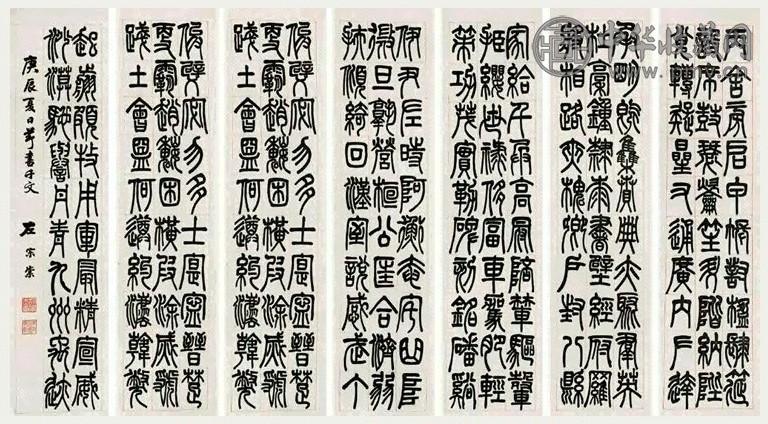 丙舍傍啟甲帳對楹肆筵
設席鼓瑟吹笙升階納陛
弁轉疑星右通廣內左達
承明既集墳典亦聚群英
杜稾鍾隸漆書壁經府羅
將相路俠槐卿戶封八縣
家給千兵高冠陪輦驅轂
振纓世祿侈富車駕肥輕
策功茂實勒碑刻銘磻溪
伊尹佐時阿衡奄宅曲阜
微旦孰營桓公匡合濟弱
扶傾綺回漢惠說感武丁
俊乂密勿多士寔寧晉楚
更霸趙魏困橫假途滅虢
踐土會盟何遵約法韓弊
俊乂密勿多士寔寧晉楚
更霸趙魏困橫假途滅虢
踐土會盟何遵約法韓弊
起翦頗牧用軍最精宣威
沙漠馳譽丹青九州禹跡
庚辰夏日節書千文
左宗棠
中华收藏网